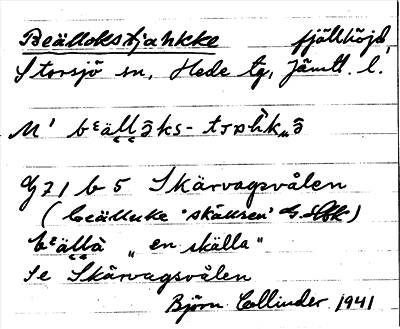 Beällokstjahkke fjällhöjd,
Storsjö sn, Hede tg, Jämtl. l.
M' bᵉäl̯l̯ə̂ks-
G 71 b 5 Skärvagsvålen
(beälluke "skällsen"
bᵉäl̯l̯à „ en skälla "
Se Skärvagsvålen
Björn Collinder 1941